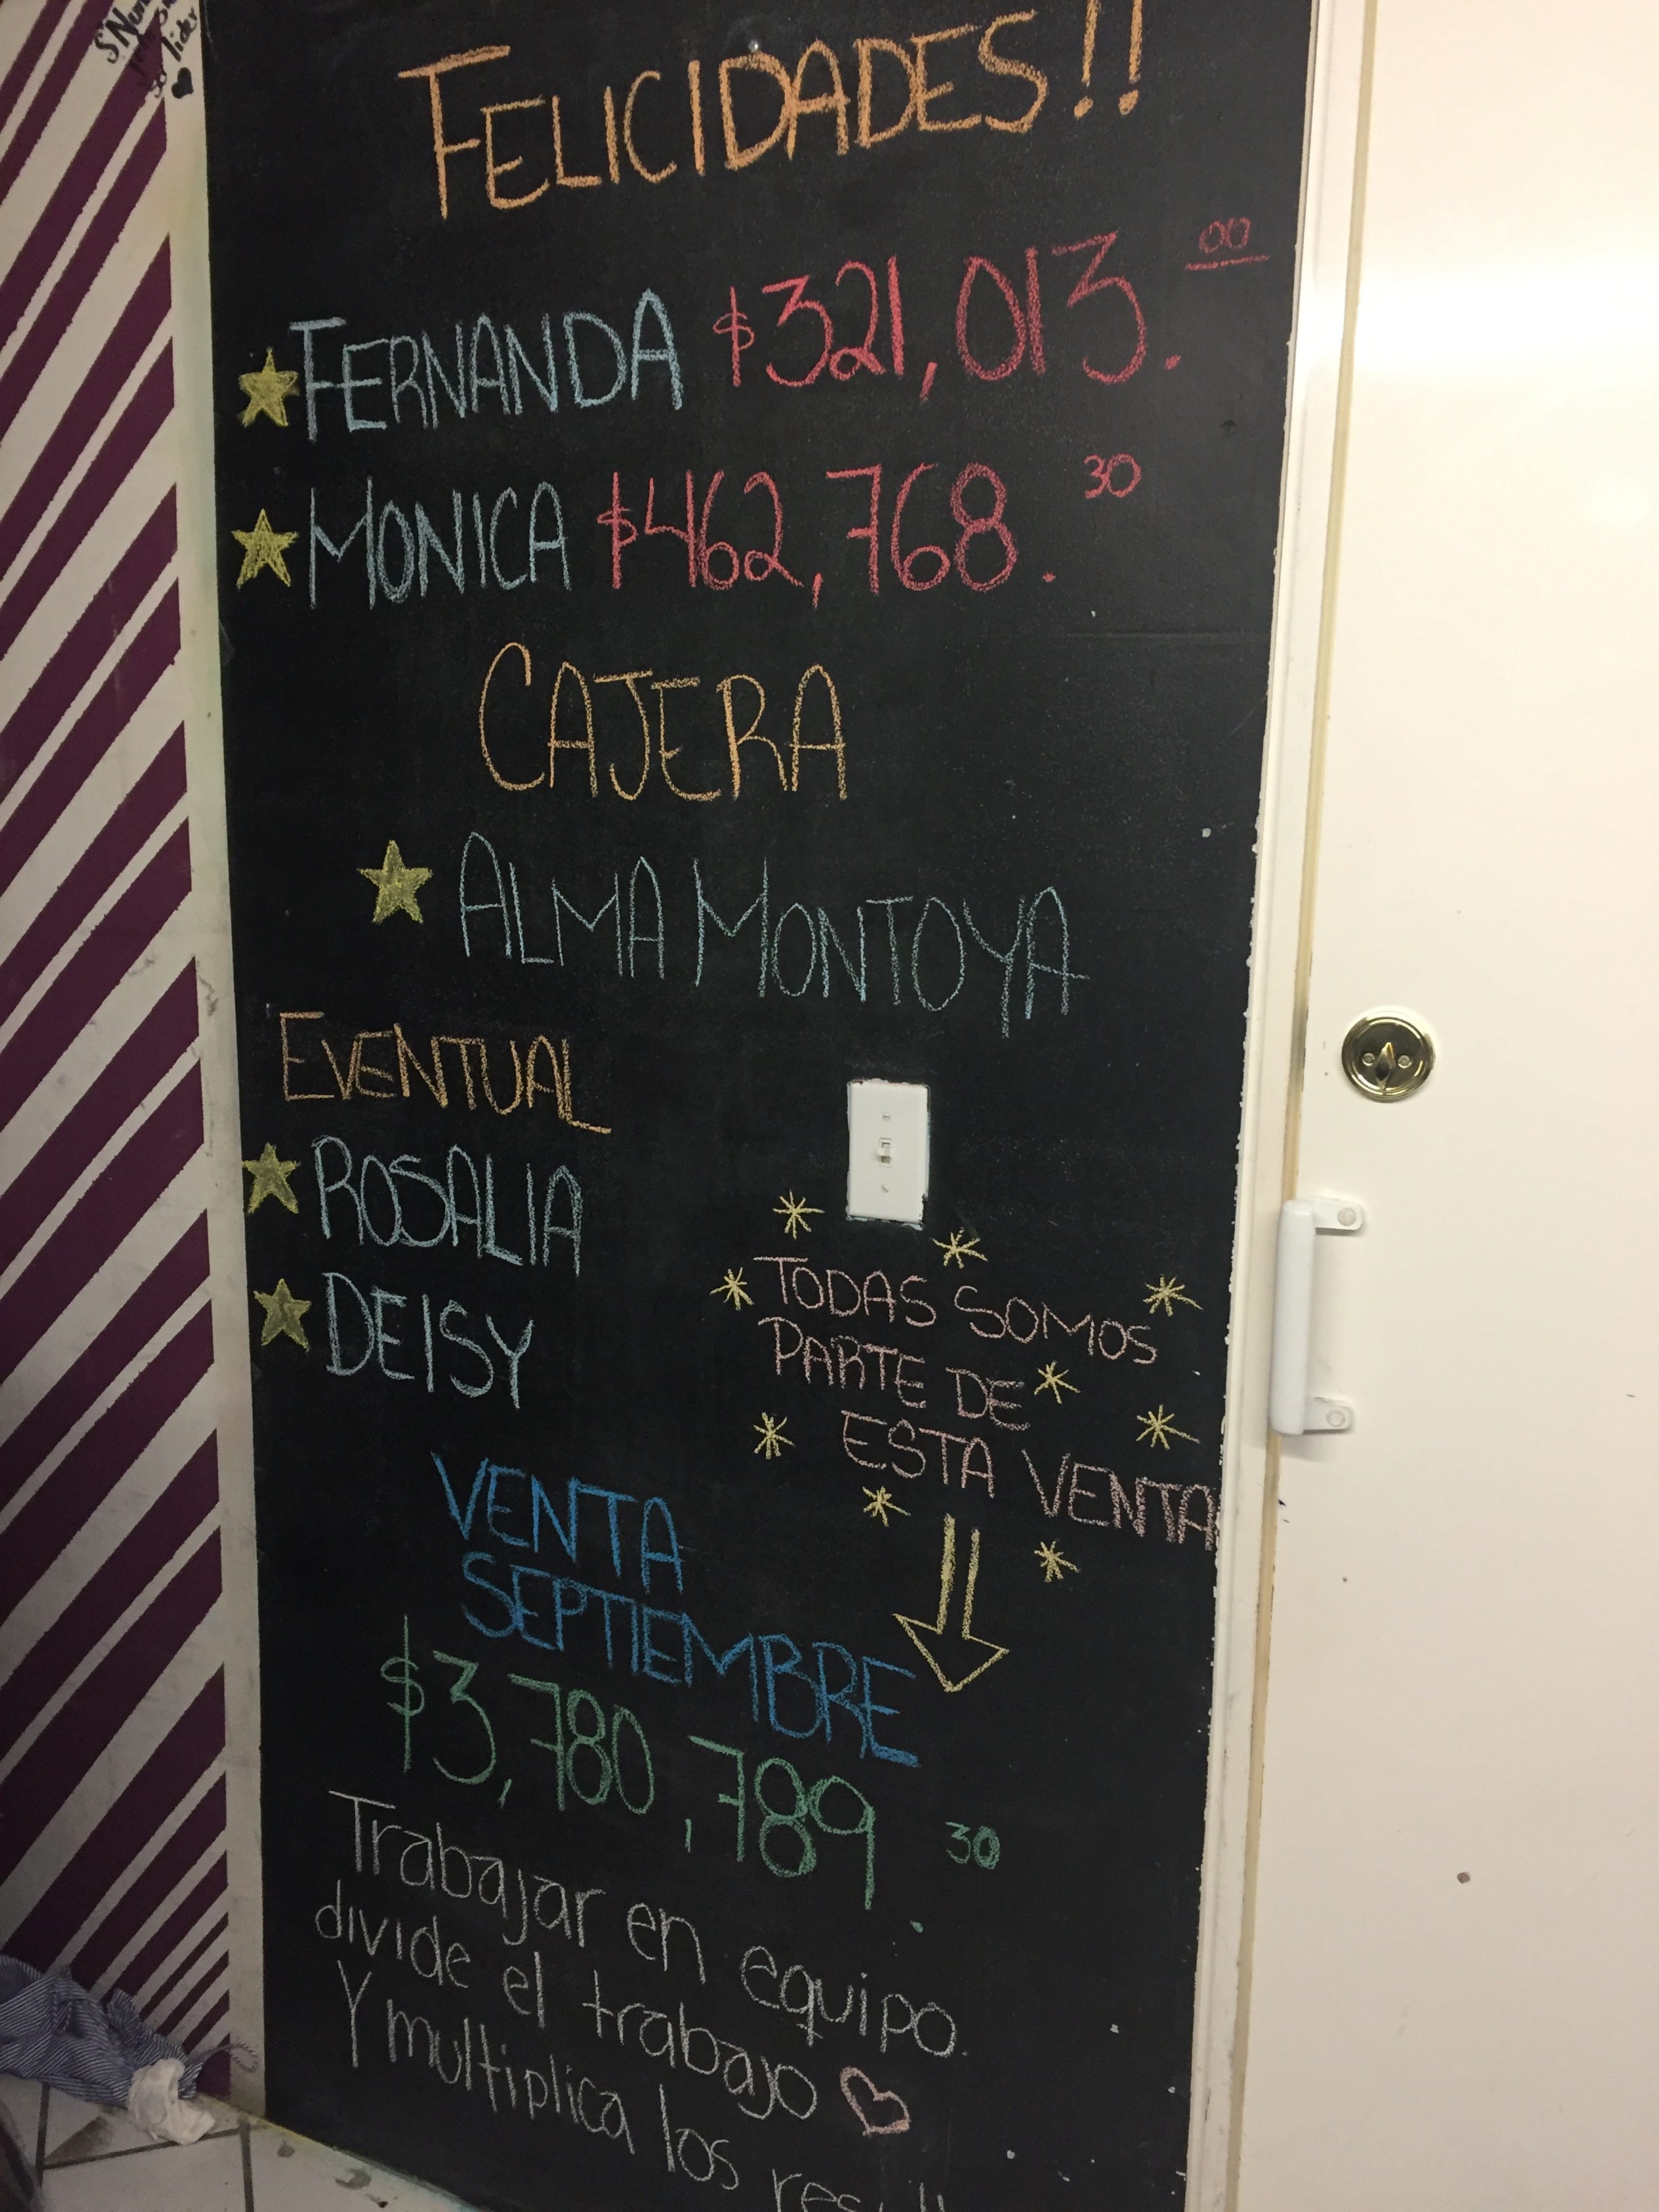 FELICIDADES!!
FERNANDA $321,013.00
MONICA $462,768.30
CAJERA
ALMA MONTOYA
EVENTUAL
ROSALIA
DEISY
TODAS SOMOS
PARTE DE
ESTA VENTA
VENTA
SEPTIEMBRE
$3,780,789.30
Trabajar en equipo
divide el trabajo
Y multiplica los